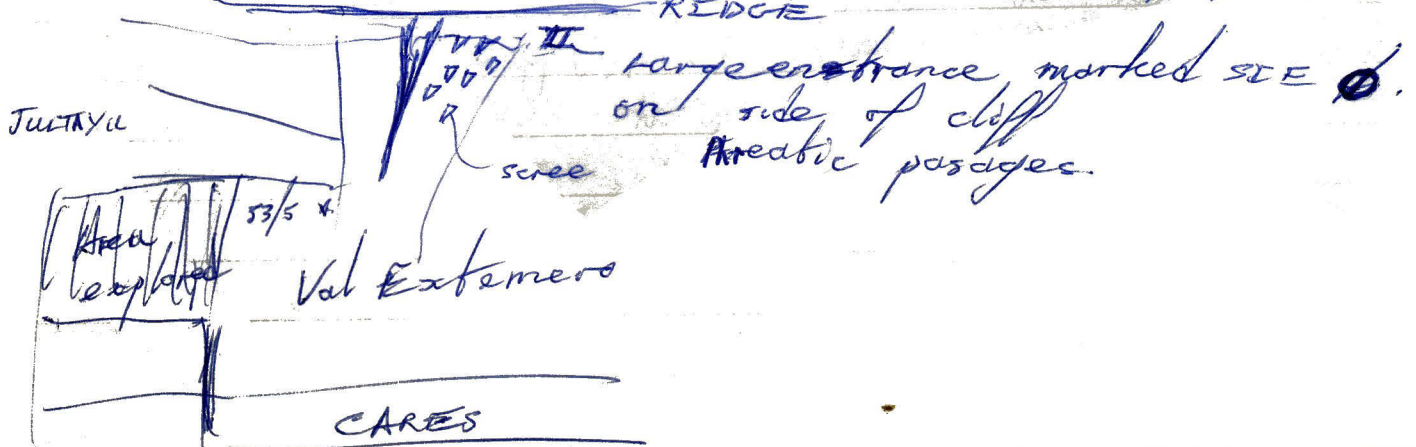 RIDGE
large entrance marked SIE Ø.
on side of cliff
Phreatic passages.
JULTAYU
scree
53/5 *
Area
explored
Val Extemero
CARES